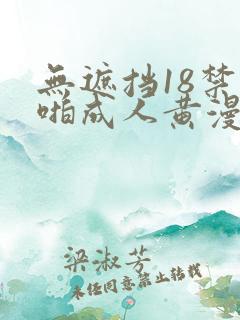 無遮挡18禁
啪成人黄漫
梁淑芳
未经同意禁止转载